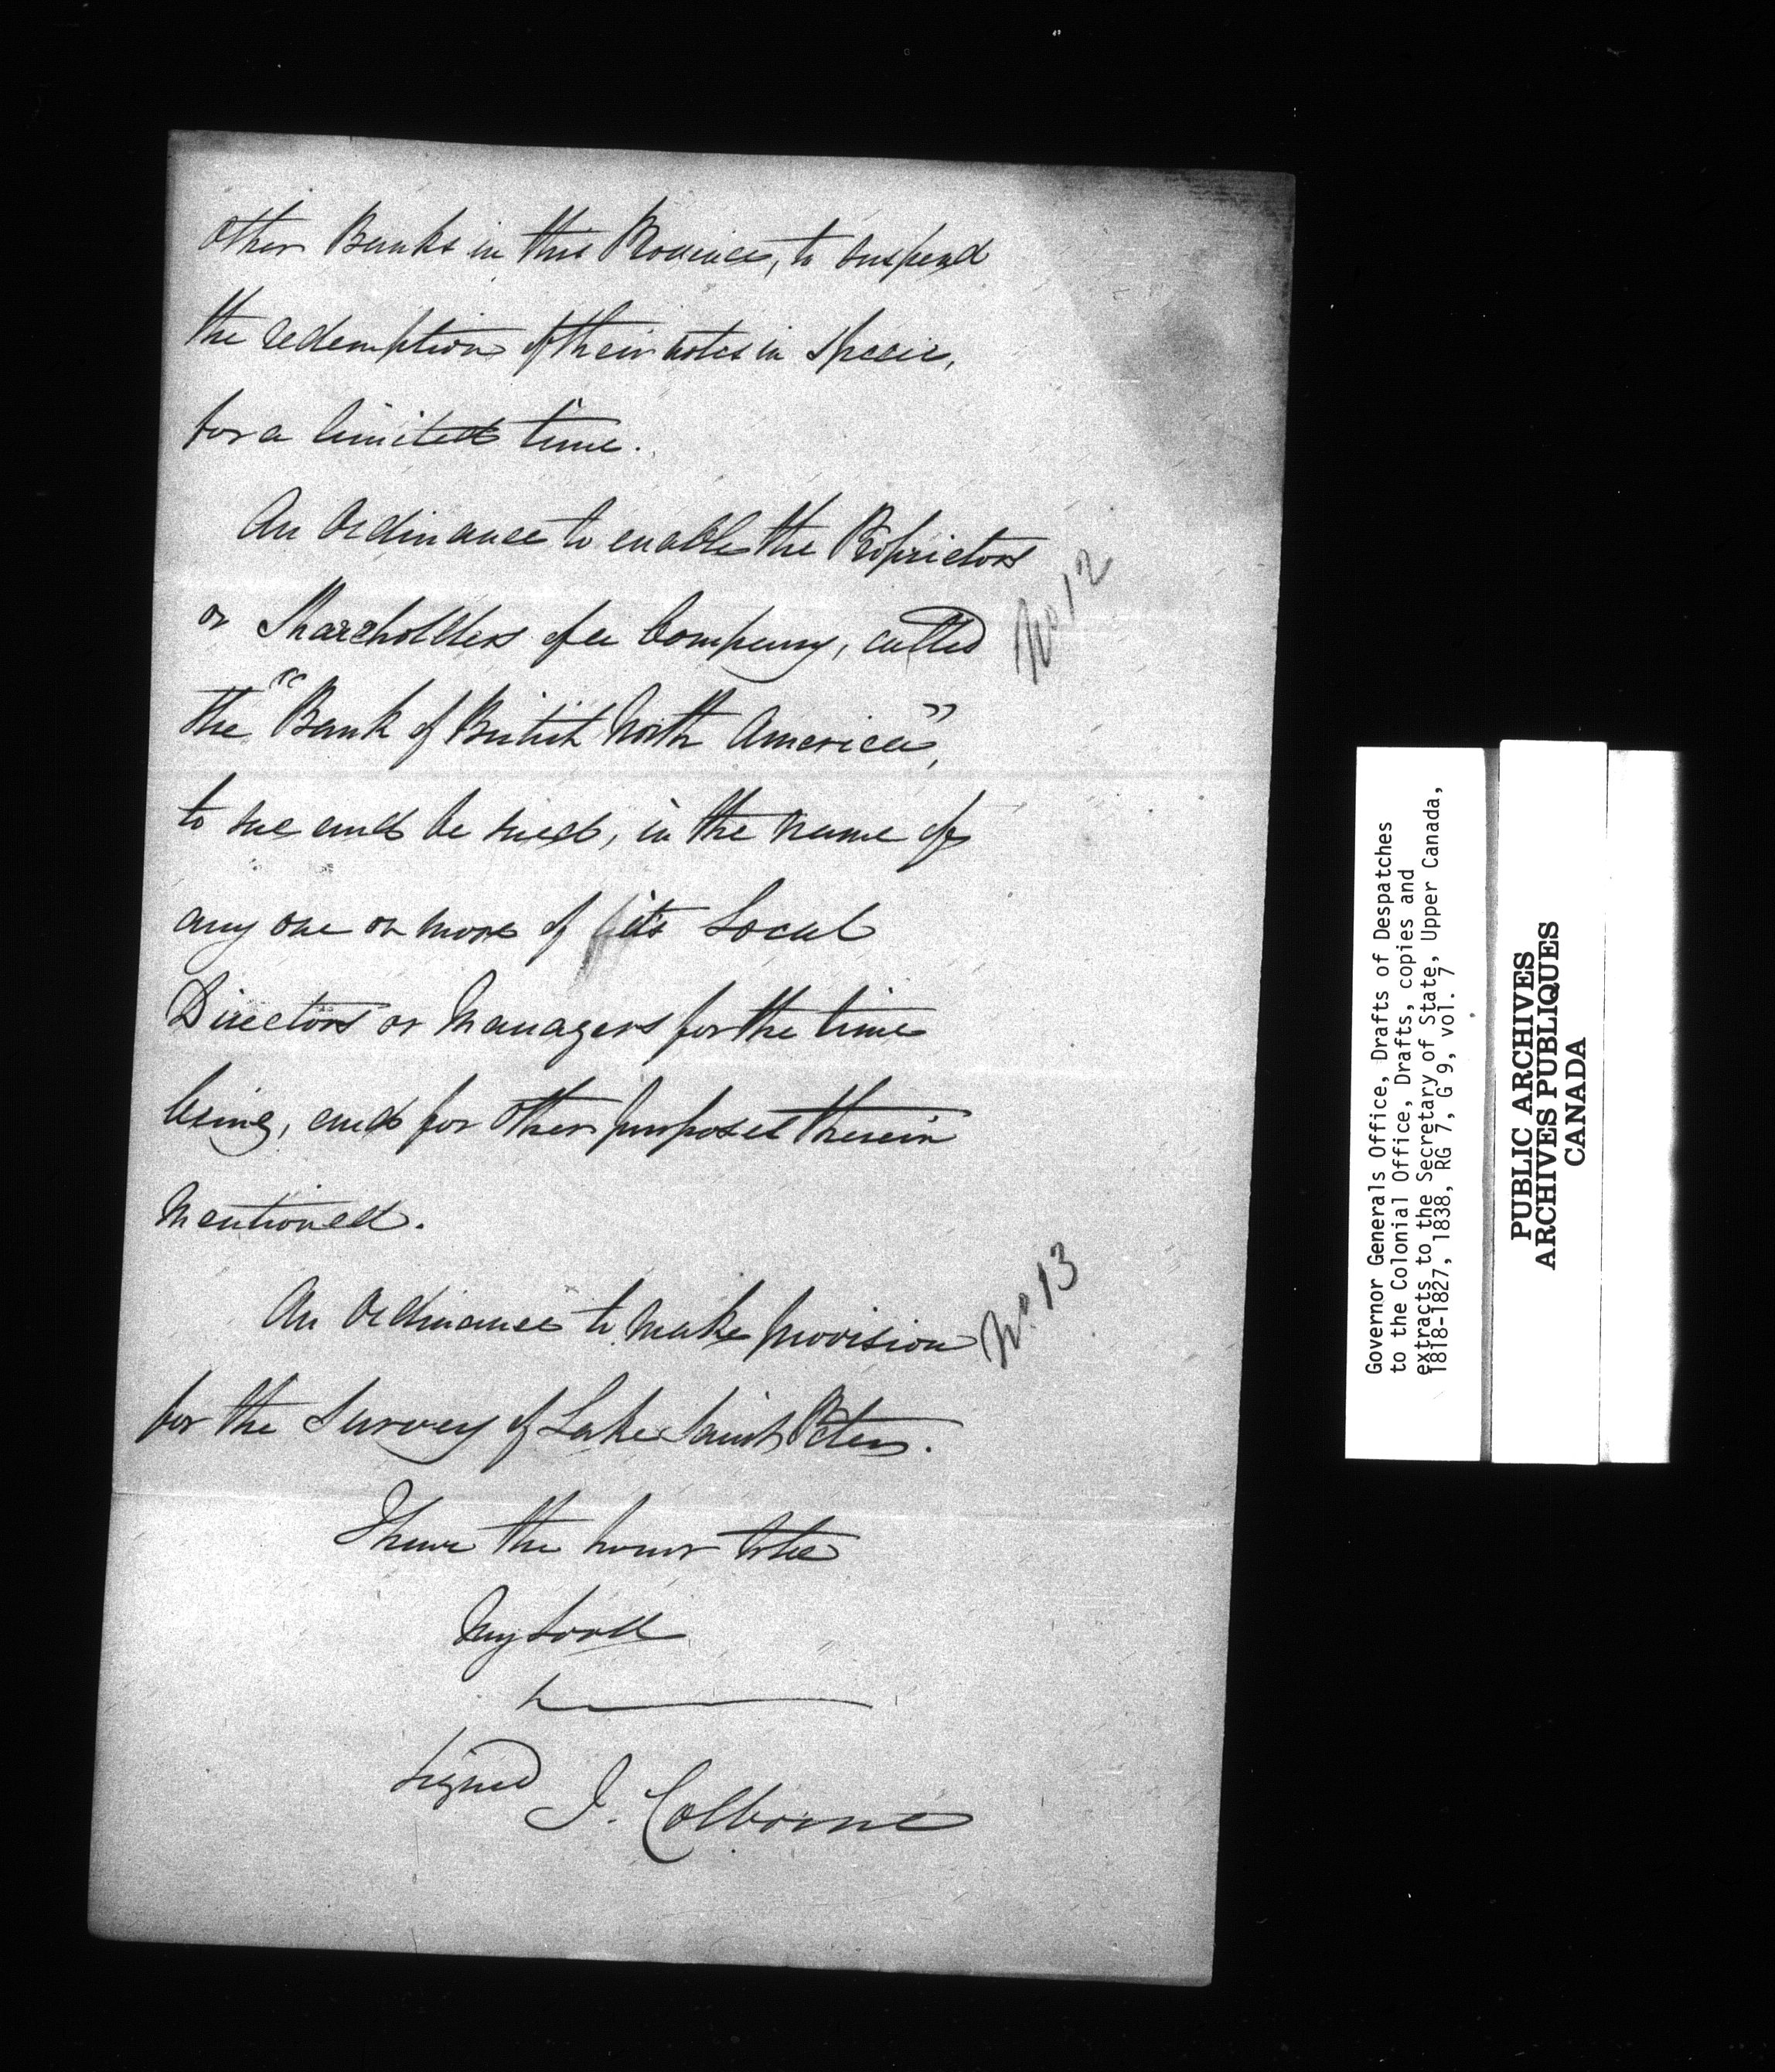 other Banks in this Province, to suspend
the redemption of their notes in Specie,
for a limited time.
An Ordinance to enable the Proprietors
or Shareholders of a Company, called
No. 12
the "Bank of British North America",
to sue and be sued, in the name of
any one or more of its Local
Directors or Managers for the time
being, and for other purposes therein
mentioned.
An Ordinance to make provision
No. 13
for the Survey of Lake Saint Peter.
I have the honor to be
My Lord
signed J. Colborne
Governor Generals Office, Drafts of Despatches
to the Colonial Office, Drafts, copies and
extracts to the Secretary of State, Upper Canada,
1818-1827, 1838, RG 7, G 9, vol. 7
PUBLIC ARCHIVES
ARCHIVES PUBLIQUES
CANADA